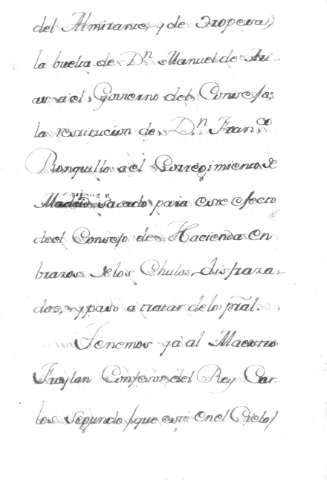 del Almirante, y de Oropesa,
la buelta de Dn. Manuel de Ari-
as a el Govierno del Consejo,
la restitucion de Dn. Franco.
Ronquillo a el Corregimiento de
Madrid sacado para este efecto
de el Consejo de Hacienda en
brazos de los Chulos disfraza-
dos, y paso a tratar de lo pral.
Tenemos ya al Maestro
Froylan Confesor del Rey Car-
los segundo (que este en el Cielo)